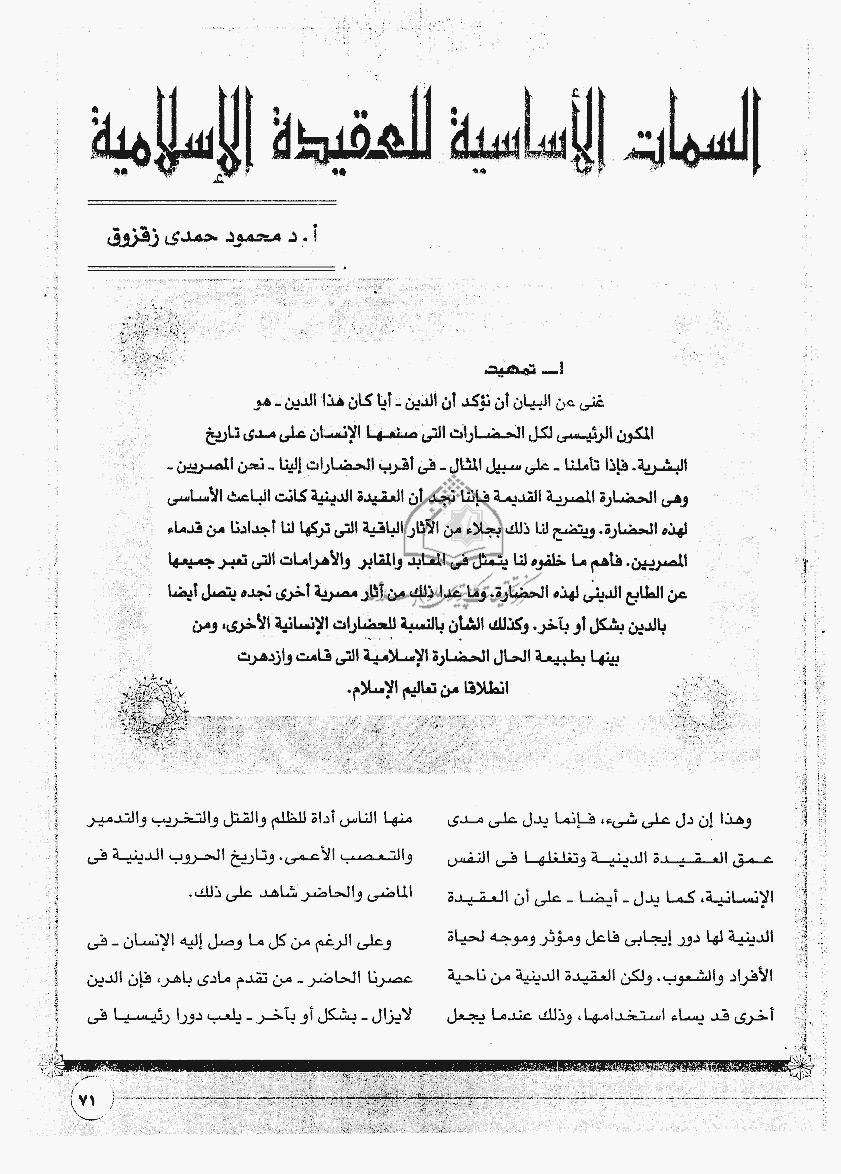 السمات الأساسية للعقيدة الإسلامية
أ . د محمود حمدى زقزوق
١ــ تمهيد
غنى عن البيان أن نؤكد أن الدين ـ أيا كان هذا الدين ـ هو
المكون الرئيسى لكل الحضارات التى صنعها الإنسان على مدى تاريخ
البشرية. فإذا تأملنا ـ على سبيل المثال ـ فى أقرب الحضارات إلينا ـ نحن المصريين ـ
وهى الحضارة المصرية القديمة فإننا نجد أن العقيدة الدينية كانت الباعث الأساسى
لهذه الحضارة. ويتضح لنا ذلك بجلاء من الآثار الباقية التى تركها لنا أجدادنا من قدماء
المصريين. فأهم ما خلفوه لنا يتمثل فى المعابد والمقابر والأهرامات التى تعبر جميعها
عن الطابع الدينى لهذه الحضارة. وما عدا ذلك من آثار مصرية أخرى نجده يتصل أيضا
بالدين بشكل أو بآخر. وكذلك الشأن بالنسبة للحضارات الإنسانية الأخرى، ومن
بينها بطبيعة الحال الحضارة الإسلامية التى قامت وازدهرت
انطلاقا من تعاليم الإسلام.
وهذا إن دل على شىء، فإنما يدل على مدى
عمق العقيدة الدينية وتغلغلها فى النفس
الإنسانية، كما يدل ـ أيضا ـ على أن العقيدة
الدينية لها دور إيجابى فاعل ومؤثر وموجه لحياة
الأفراد والشعوب. ولكن العقيدة الدينية من ناحية
أخرى قد يساء استخدامها، وذلك عندما يجعل
منها الناس أداة للظلم والقتل والتخريب والتدمير
والتعصب الأعمى. وتاريخ الحروب الدينية فى
الماضى والحاضر شاهد على ذلك.
وعلى الرغم من كل ما وصل إليه الإنسان ـ فى
عصرنا الحاضر ـ من تقدم مادى باهر، فإن الدين
لايزال ـ بشكل أو بآخر ـ يلعب دورا رئيسيا فى
٧١